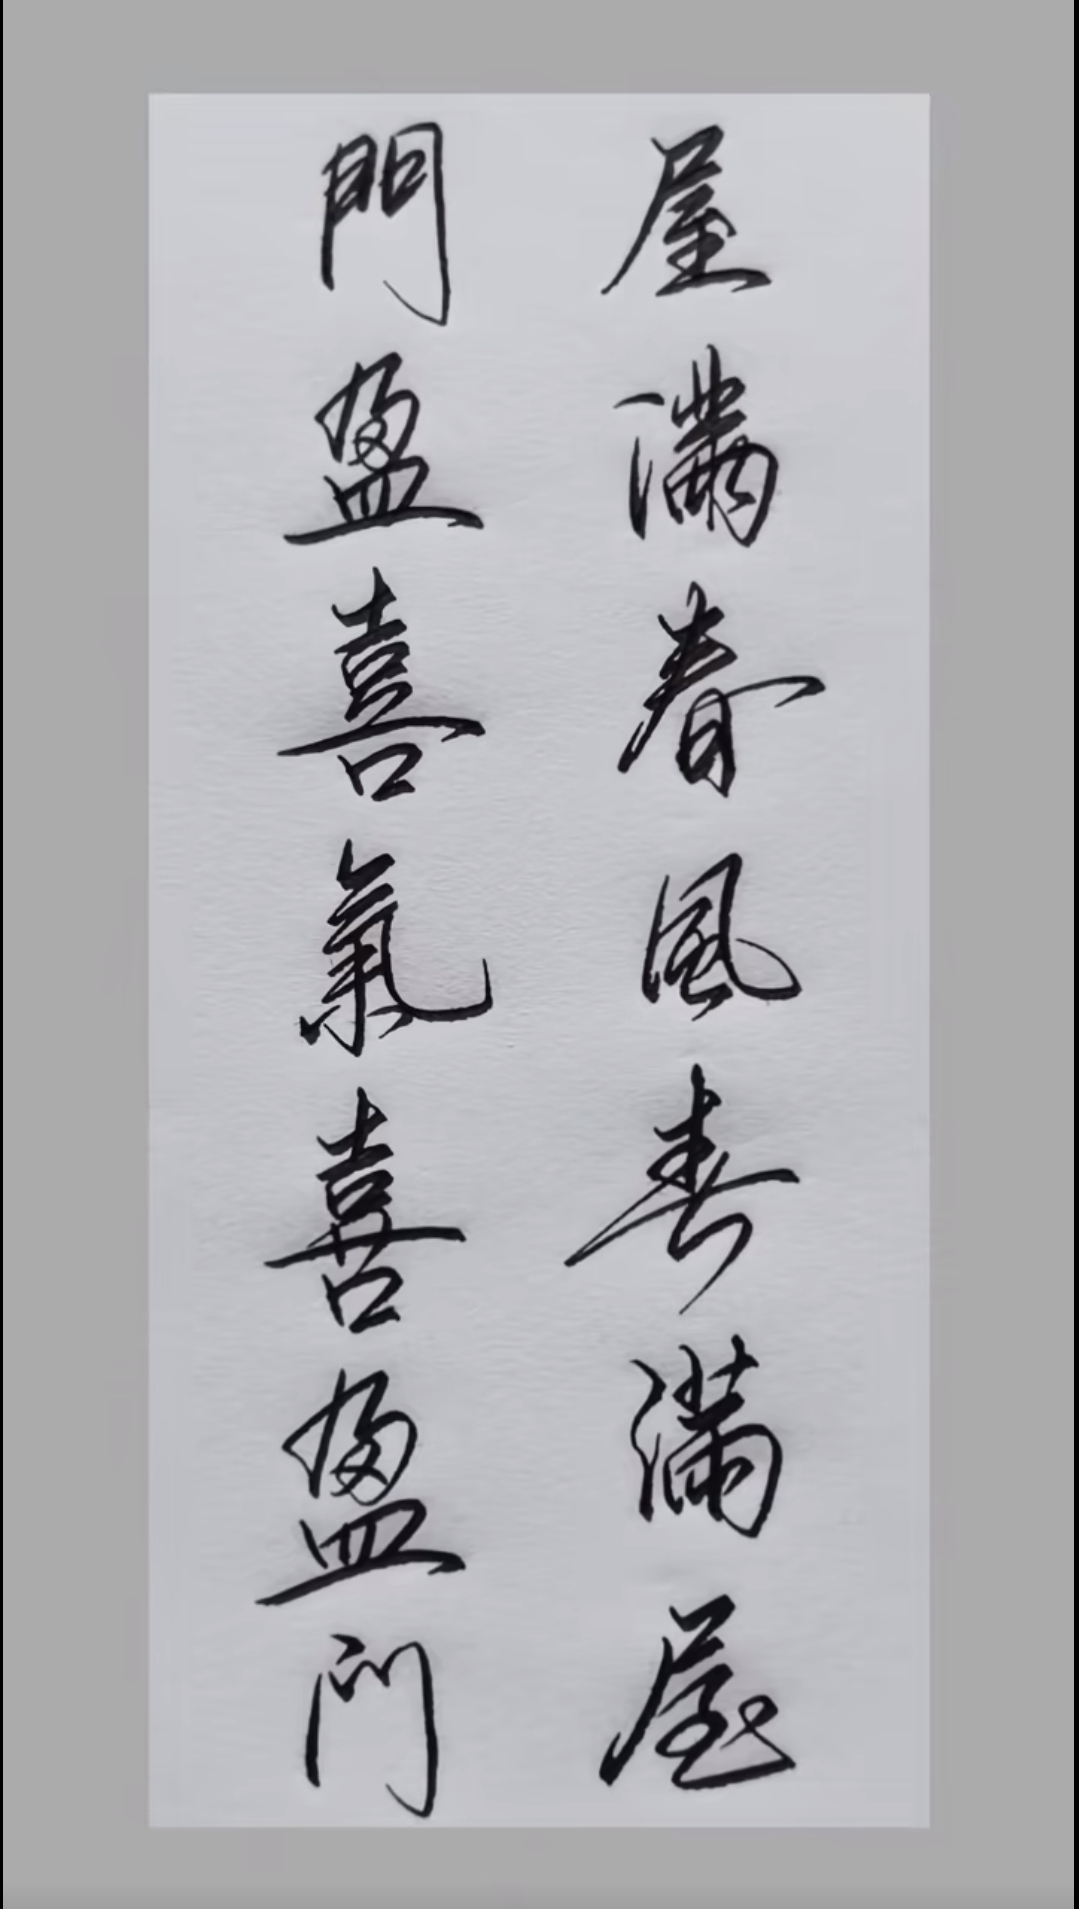 屋滿春風春滿屋
門盈喜氣喜盈門